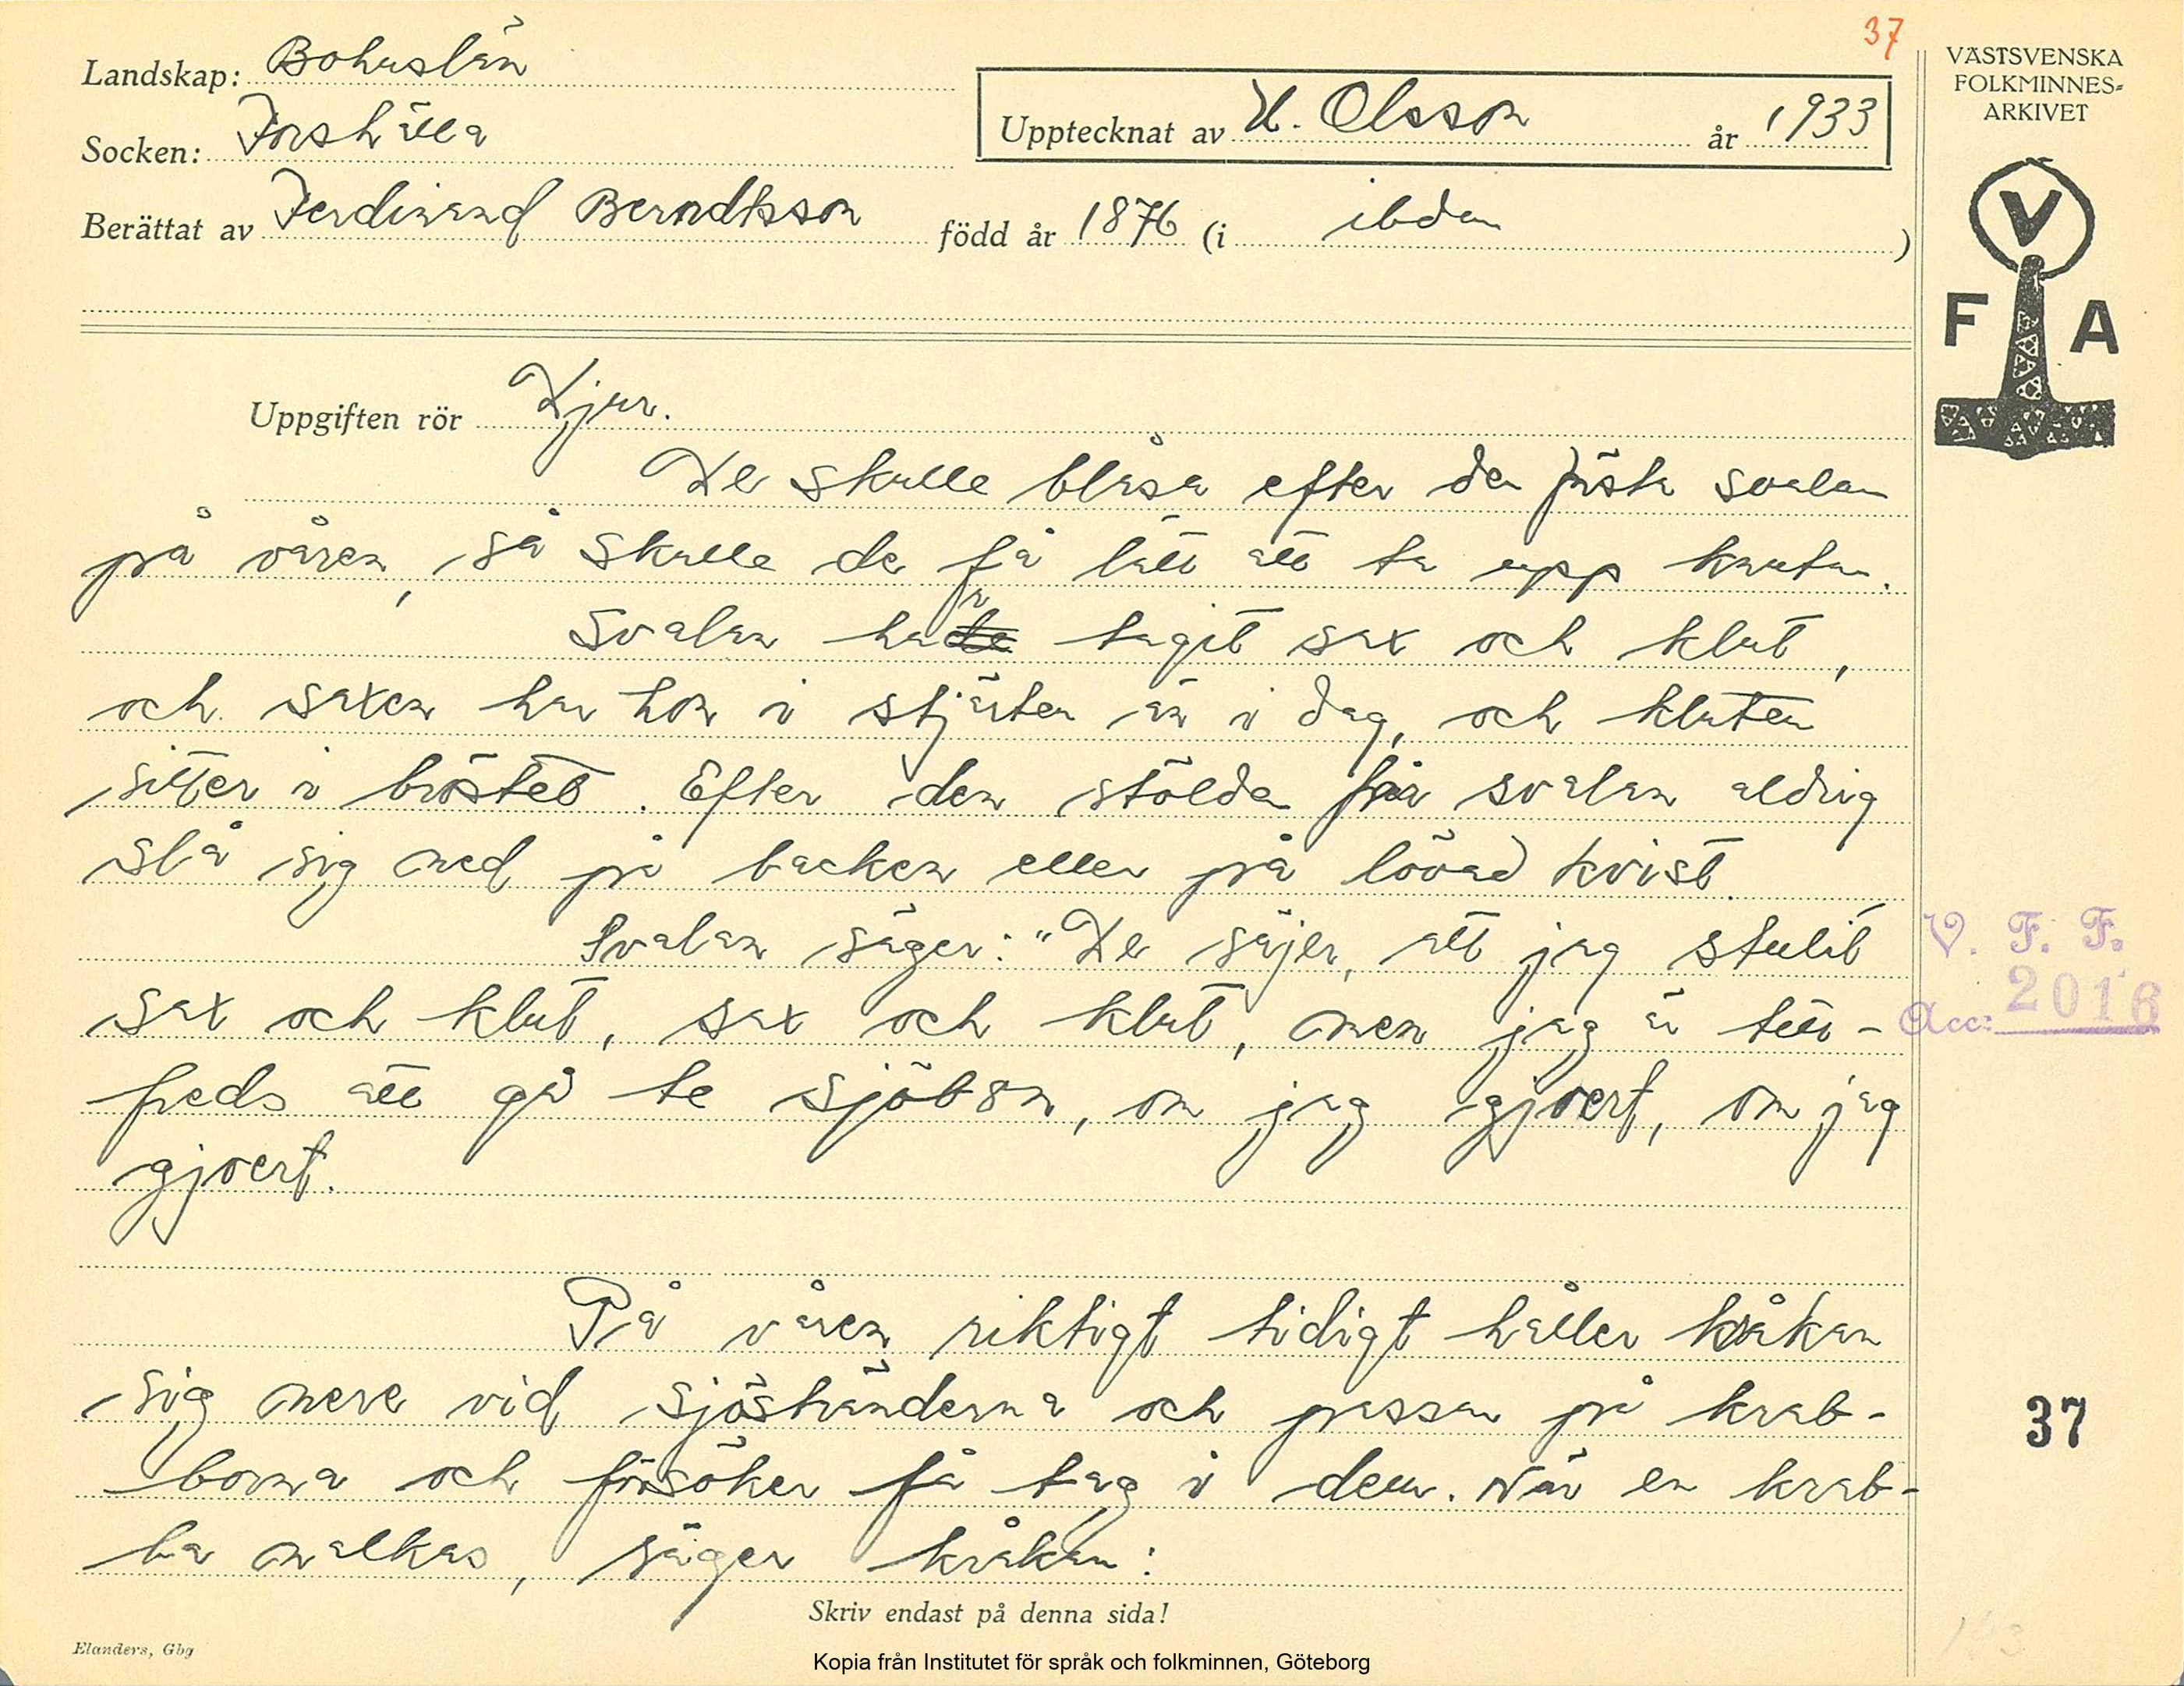 37
Landskap: Bohuslän
Socken: Forshälla
Upptecknat av H. Olsson år 1933
Berättat av Ferdinand Berndtsson född år 1876 (i ibdm )
VÄSTSVENSKA
FOLKMINNES-
ARKIVET
V
F A
Uppgiften rör Djur.
De skulle blåsa efter den första svalan
på våren, så skulle de få lätt att ta upp knutar.
Svalan har tagit sax och klut,
och saxen har hon i stjärten än i dag, och kluten
sitter i bröstet. Efter den stölden får svalan aldrig
slå sig ned på backen eller på lövad kvist.
Svalan säger: "De säjer, att jag stulit
sax och klut, sax och klut, men jag är till-
freds att gå te sjöbon, om jag gjort, om jag
gjort.
V. F. F.
Acc: 2016
På våren riktigt tidigt håller kråkan
sig nere vid sjöstränderna och passar på krab-
borna och försöker få tag i dem. När en krab-
ba nalkas, säger kråkan:
37
Skriv endast på denna sida!
Elanders, Gbg
Kopia från Institutet för språk och folkminnen, Göteborg